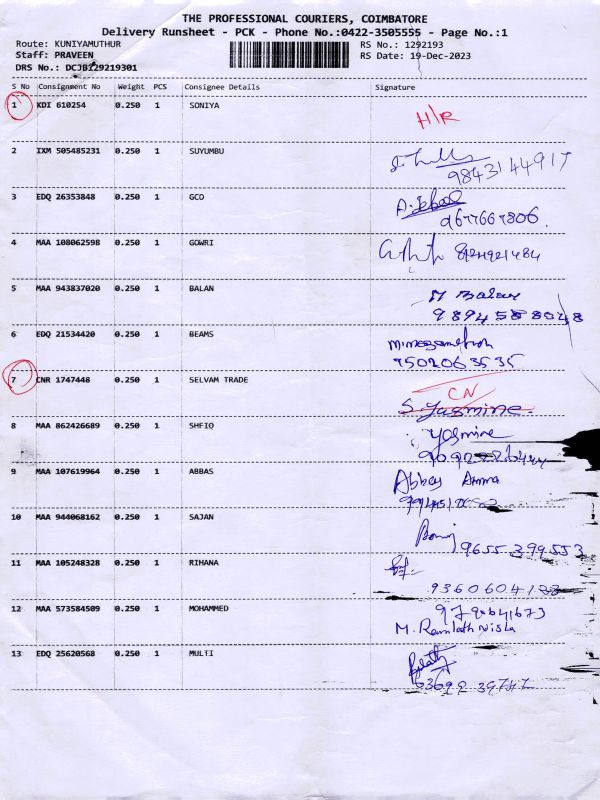 THE PROFESSIONAL COURIERS, COIMBATORE
Delivery Runsheet - PCK - Phone No.:0422-3505555 - Page No.:1
Route: KUNIYAMUTHUR RS No.: 1292193
Staff: PRAVEEN RS Date: 19-Dec-2023
DRS No.: DCJB129219301
S No Consignment No Weight PCS Consignee Details Signature
1 KDI 610254 0.250 1 SONIYA H/R
2 IXM 505485231 0.250 1 SUYUMBU
9843144917
3 EDQ 26353848 0.250 1 GCO
9677667806.
4 MAA 108062598 0.250 1 GOWRI
5 MAA 943837020 0.250 1 BALAN M Balan
9894588048
6 EDQ 21534420 0.250 1 BEAMS
9502063535
7 CNR 1747448 0.250 1 SELVAM TRADE CN
S. Yasmine.
8 MAA 862426689 0.250 1 SHFIQ Yasmine
9 MAA 107619964 0.250 1 ABBAS Abbas Amma
10 MAA 944068162 0.250 1 SAJAN
9655399553
11 MAA 105248328 0.250 1 RIHANA
12 MAA 573584509 0.250 1 MOHAMMED
M. Ramlath Nisha
13 EDQ 25620568 0.250 1 MULTI